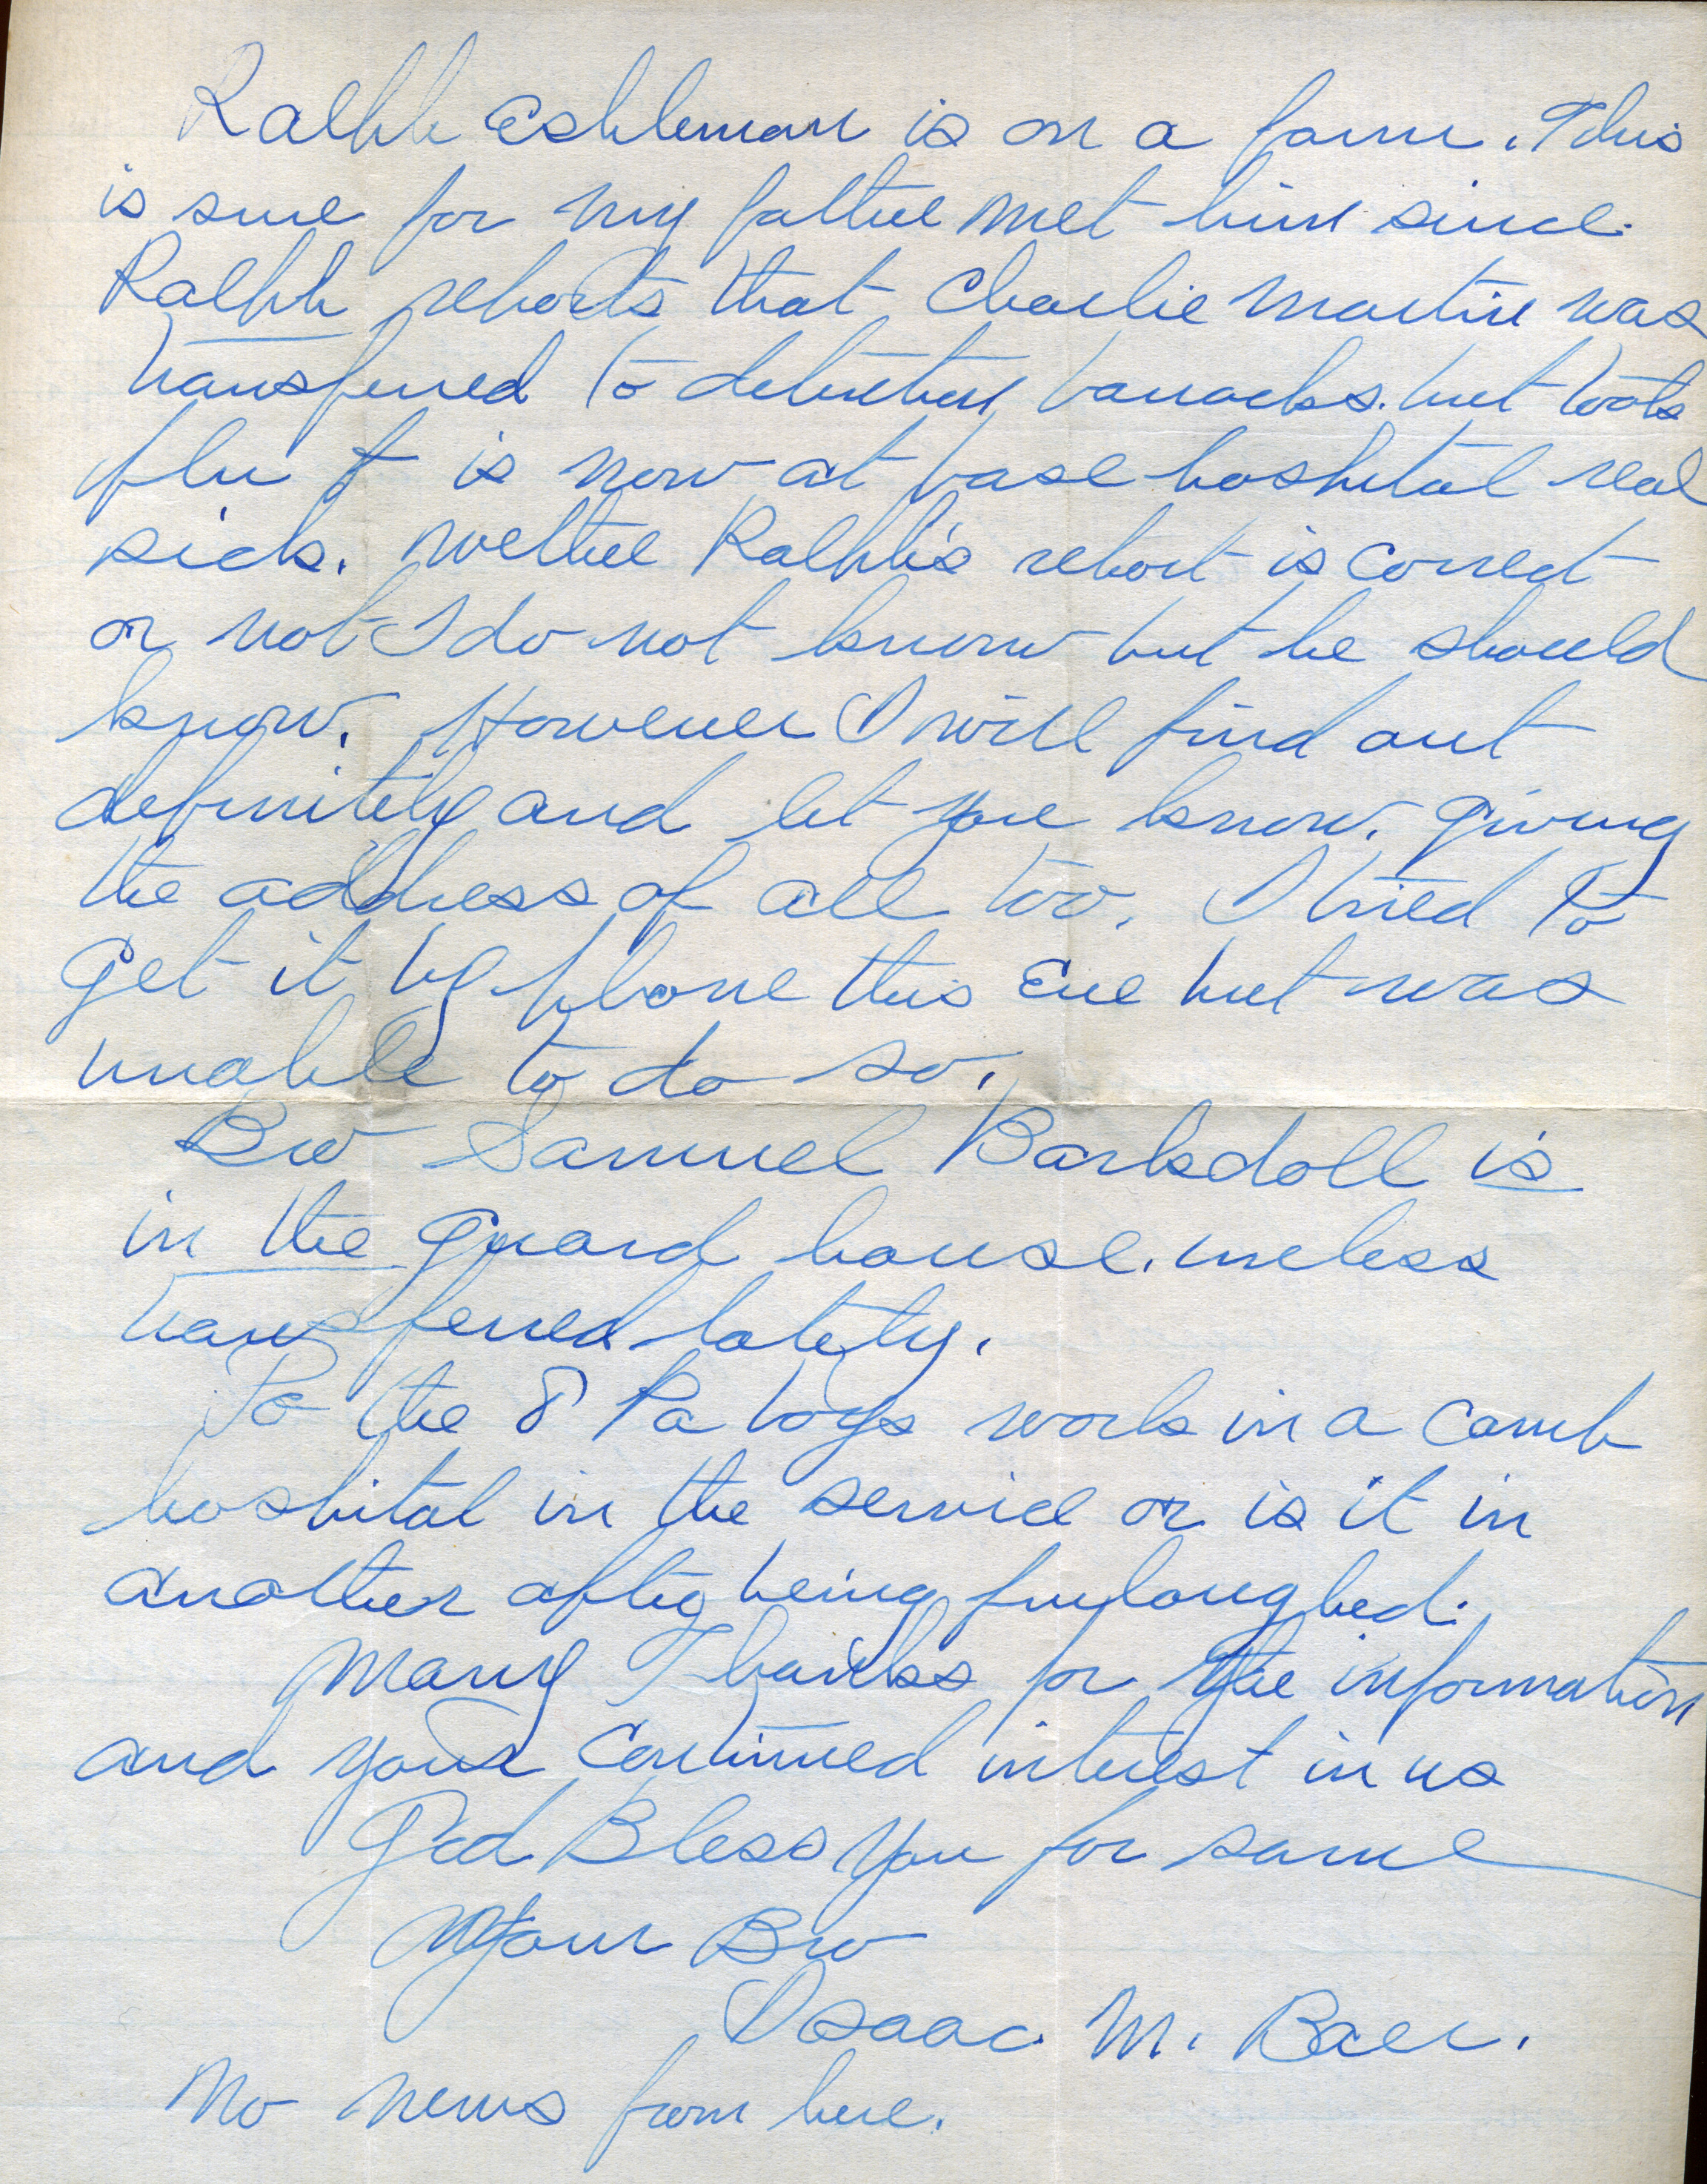 Ralph Eshleman is on a farm. This
is sure for my father met him since.
Ralph reports that Charlie Martin was
transferred to detention barracks. but took
flu & is now at base hospital real
sick. Wether Ralph's report is correct
or not I do not know but he should
know. However I will find out
definitely and let you know. giving
the address of all too. I tried to
get it by phone this Eve but was
unable to do so.
Bro Samuel Barkdoll is
in the guard house. unless
transferred lately.
Do the 8 Pa boys work in a camp
hospital in the service or is it in
another after being furloughed.
Many Thanks for the information
and your continued interest in us
God Bless you for same
Your Bro
Isaac M. Baer.
No news from here.